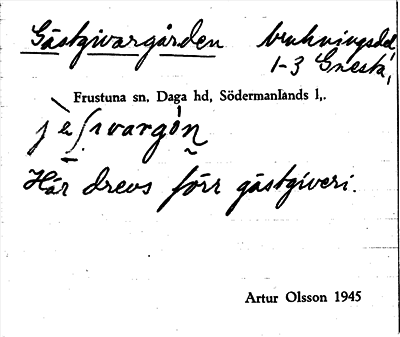 Gästgivargården brukningsdel
1-3 Gnesta,
Frustuna sn, Daga hd, Södermanlands l,.
Här drevs förr gästgiveri.
Artur Olsson 1945